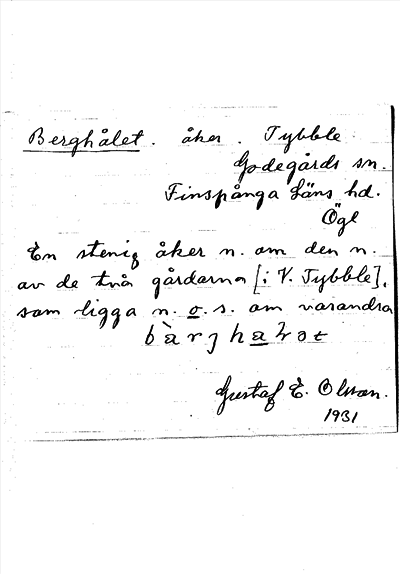 Berghålet. åker. Tybble
Godegårds sn.
Finspånga Läns hd.
Ögl
En stenig åker n. om den n.
av de två gårdarna [i V. Tybble],
som ligga n. o. s. om varandra
Gustaf E. Olson.
1931